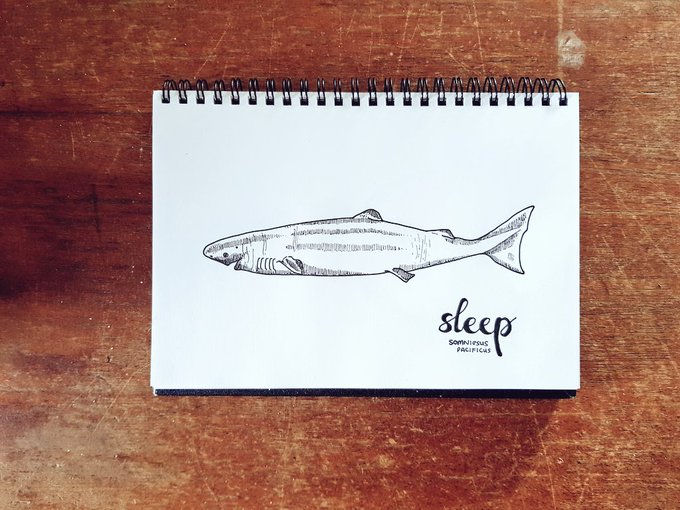 sleep
SOMNIOSUS
PACIFICUS